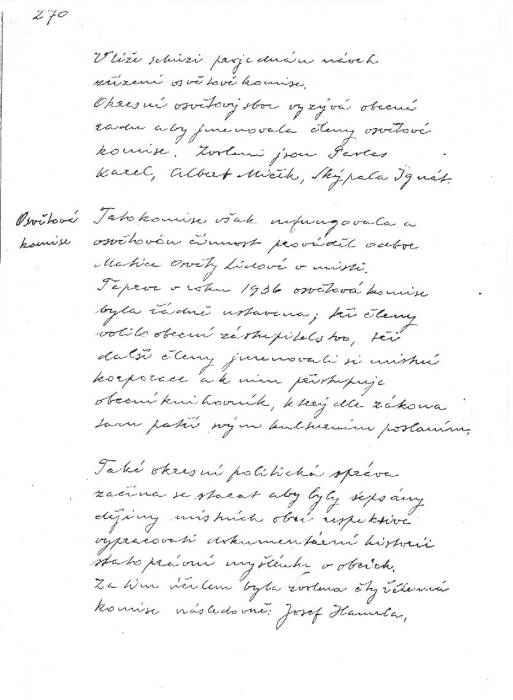 270
V téže schůzi projednán návrh
zřízení osvětové komise.
Okresní osvětový sbor vyzývá obecní
radu aby jmenovala členy osvětové
komise. Zvoleni jsou Pavlas
Karel, Albert Mičík, Skýpala Ignát.
Osvětová
komise
Tato komise však nefungovala a
osvětovou činnost prováděl odbor
Matice Osvěty Lidové v místě.
Teprve v roku 1936 osvětová komise
byla řádně ustavena; tři členy
volilo obecní zastupitelstvo, tři
další členy jmenovali si místní
korporace a k nim přistupuje
obecní knihovník, který dle zákona
tam patří svým kulturním posláním.
Také okresní politická správa
začíná se starat aby byly sepsány
dějiny místních obcí respektive
vypracovati dokumentární historii
státoprávní myšlénky v obcích.
Za tím účelem byla zvolena čtyřčlenná
komise následovně: Josef Hamrla,